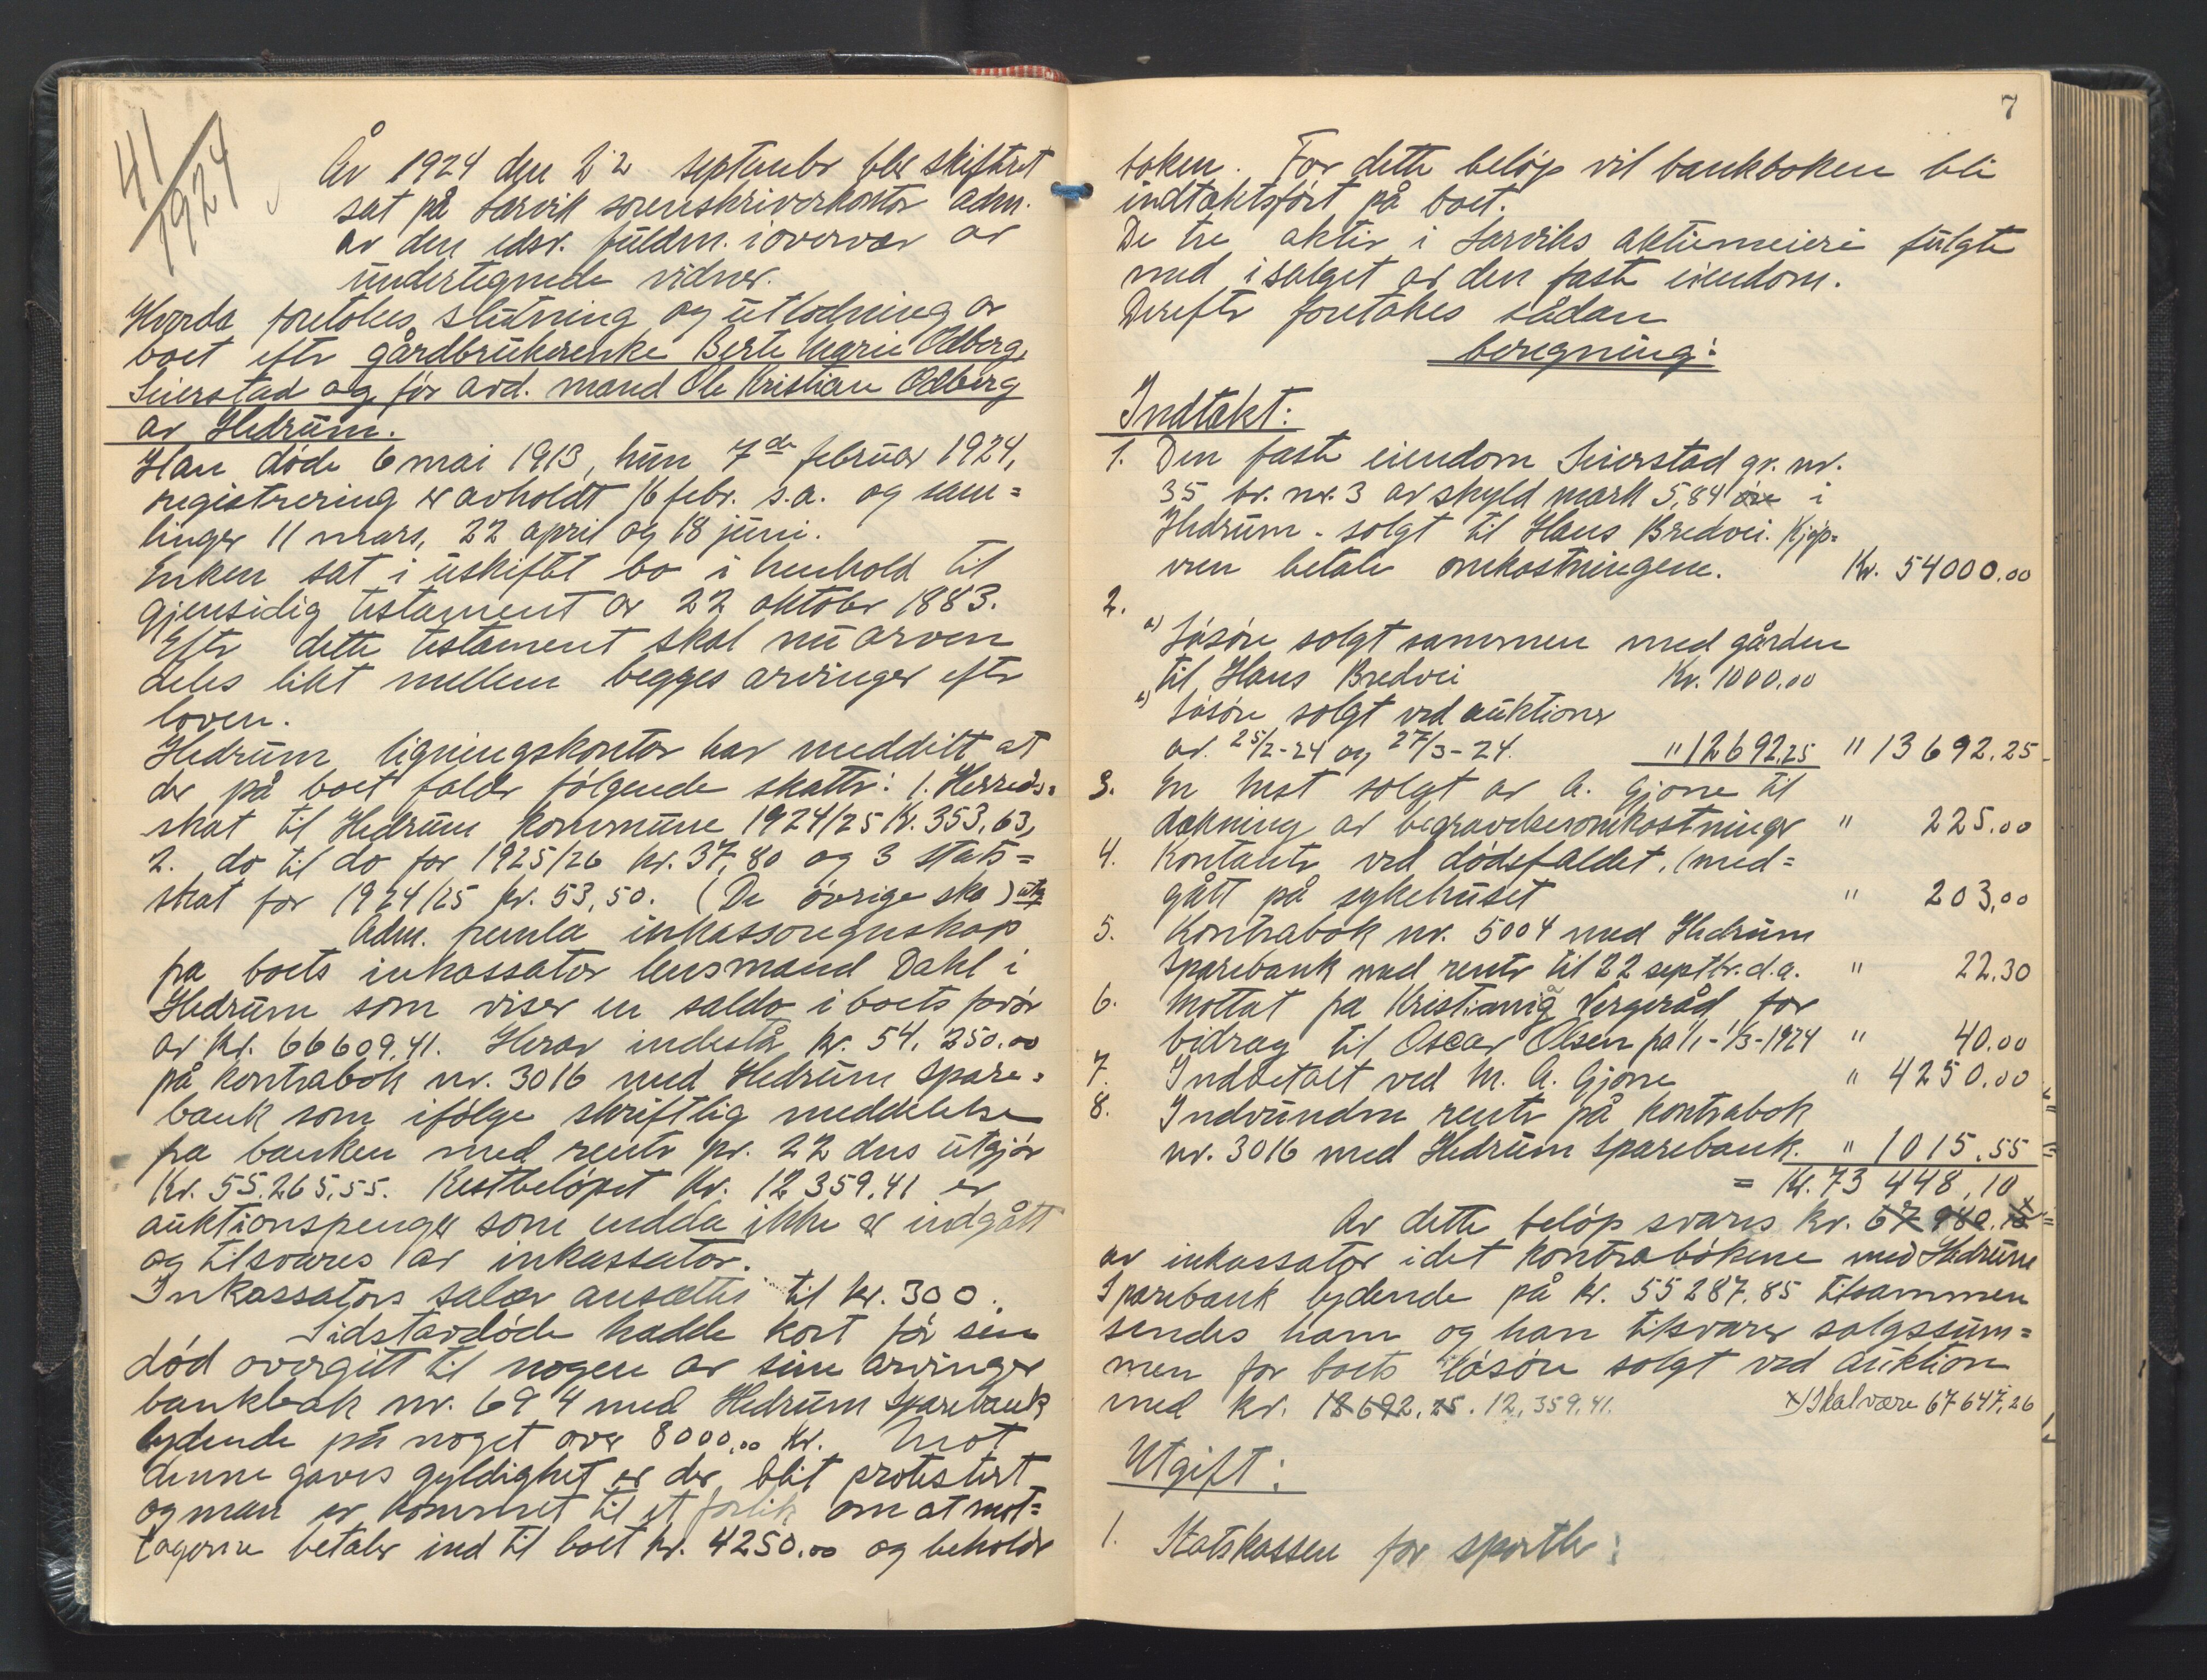 41/1924
År 1924 den 22 septembr blev skifteret
sat på Larvik sorenskriverkontor adm.
av den edsv. fuldm. i overvær av
undertegnede vidner.
Hvorda foretokes slutning og utlodning av
boet eftr gårdbrukerenke Berte Marie Odberg,
Seierstad og før avd. mand Ole Kristian Odberg
av Hedrum.
Han døde 6 mai 1913, hun 7de februar 1924,
registrering er avholdt 16 febr. s.a. og sam=
linger 11 mars, 22 april og 18 juni.
Enken sat i uskiftet bo i henhold til
gjensidig testament av 22 oktobr 1883.
Eftr dette testament skal nu arven
deles likt mellem begges arvinger eftr
loven.
Hedrum ligningskontor har meddelt at
der på boet faldr følgende skattr: 1. Herreds=
skat til Hedrum kommune 1924/25 kr. 353,63,
2. do til do for 1925/26 kr. 37,80 og 3 stats=
skat for 1924/25 kr. 53,50. (De øvrige ska) utg
Adm. fremla inkassoregnskap
fra boets inkassator lensmand Dahl i
Hedrum som viser en saldo i boets favør
av kr. 66609,41. Herav indestår kr. 54.250.00
på kontrabok nr. 3016 med Hedrum Spare=
bank som ifølge skriftlig meddelelse
fra banken med rentr pr. 22 dns utgjør
kr. 55.265,55. Restbeløpet kr. 12359,41 er
auktionspenger som endda ikke er indgått
og tilsvares av inkassator.
Inkassators salær ansættes til kr. 300.
Sidstavdøde hadde kort før sin
død overgitt til nogen av sine arvinger
bankbok nr. 694 med Hedrum Sparebank
lydende på noget over 8000,00 kr. Mot
denne gaves gyldighet er der blit protestert
og man er kommet til et forlik om at mot=
tagerne betaler ind til boet kr. 4250.00 og beholdr
7
boken. For dette beløp vil bankboken bli
indtæktsført på boet.
De tre aktir i Larviks aktiemeieri fulgte
med i salget av den faste eiendom.
Dereftr foretokes sådan
beregning:
Indtækt:
1. Den faste eiendom Seierstad gr. nr.
35 br. nr. 3 av skyld mark 5,84 øre i
Hedrum - solgt til Hans Bredvei. Kjøp=
eren betaler omkostningene. Kr. 54000.00
2.
a) Løsøre solgt sammen med gården
til Hans Bredvei Kr. 1000.00
b) Løsøre solgt ved auktioner
av. 25/2-24 og 27/3-24. " 12692,25 " 13692.25
3. En hest solgt av A. Gjone til
dækning av begravelsesomkostninger " 225.00
4. Kontantr ved dødsfaldet, (med=
gått på sykehuset " 203,00
5. Kontrabok nr. 5004 med Hedrum
Sparebank med rentr til 22 septbr. d.a. " 22.30
6. Mottat fra Kristiania Vergeråd for
bidrag til Oscar Olsen fra 1/1 - 1/3-1924 " 40.00
7. Indbetalt ved M. A. Gjone " 4250.00
8. Indvundne rentr på kontrabok
nr. 3016 med Hedrum Sparebank. " 1015.55
= Kr. 73 448,10
Av dette beløp svares kr. 67 980.10 x
av inkassator idet kontrabøkene med Hedrum
Sparebank lydende på kr. 55287.85 tilsammen
sendes ham og han tilsvarer salgssum=
men for boets løsøre solgt ved auktion
med kr. 12692.25. 12.359,41. x) Skal være 67647,26
Utgift:
1. Statskassen for sportler: